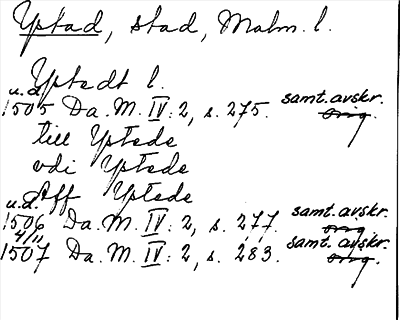 Ystad, stad, Malm. l.
Ystedt l.
u.d.
1505 Da. M. IV: 2, s. 275. samt. avskr.
orig.
till Ystede
vdi Ystede
Aff Ystede
u.d.
1506 Da. M. IV: 2, s. 277. samt. avskr.
orig.
4/11
1507 Da. M. IV: 2, s. 283. samt. avskr.
orig.